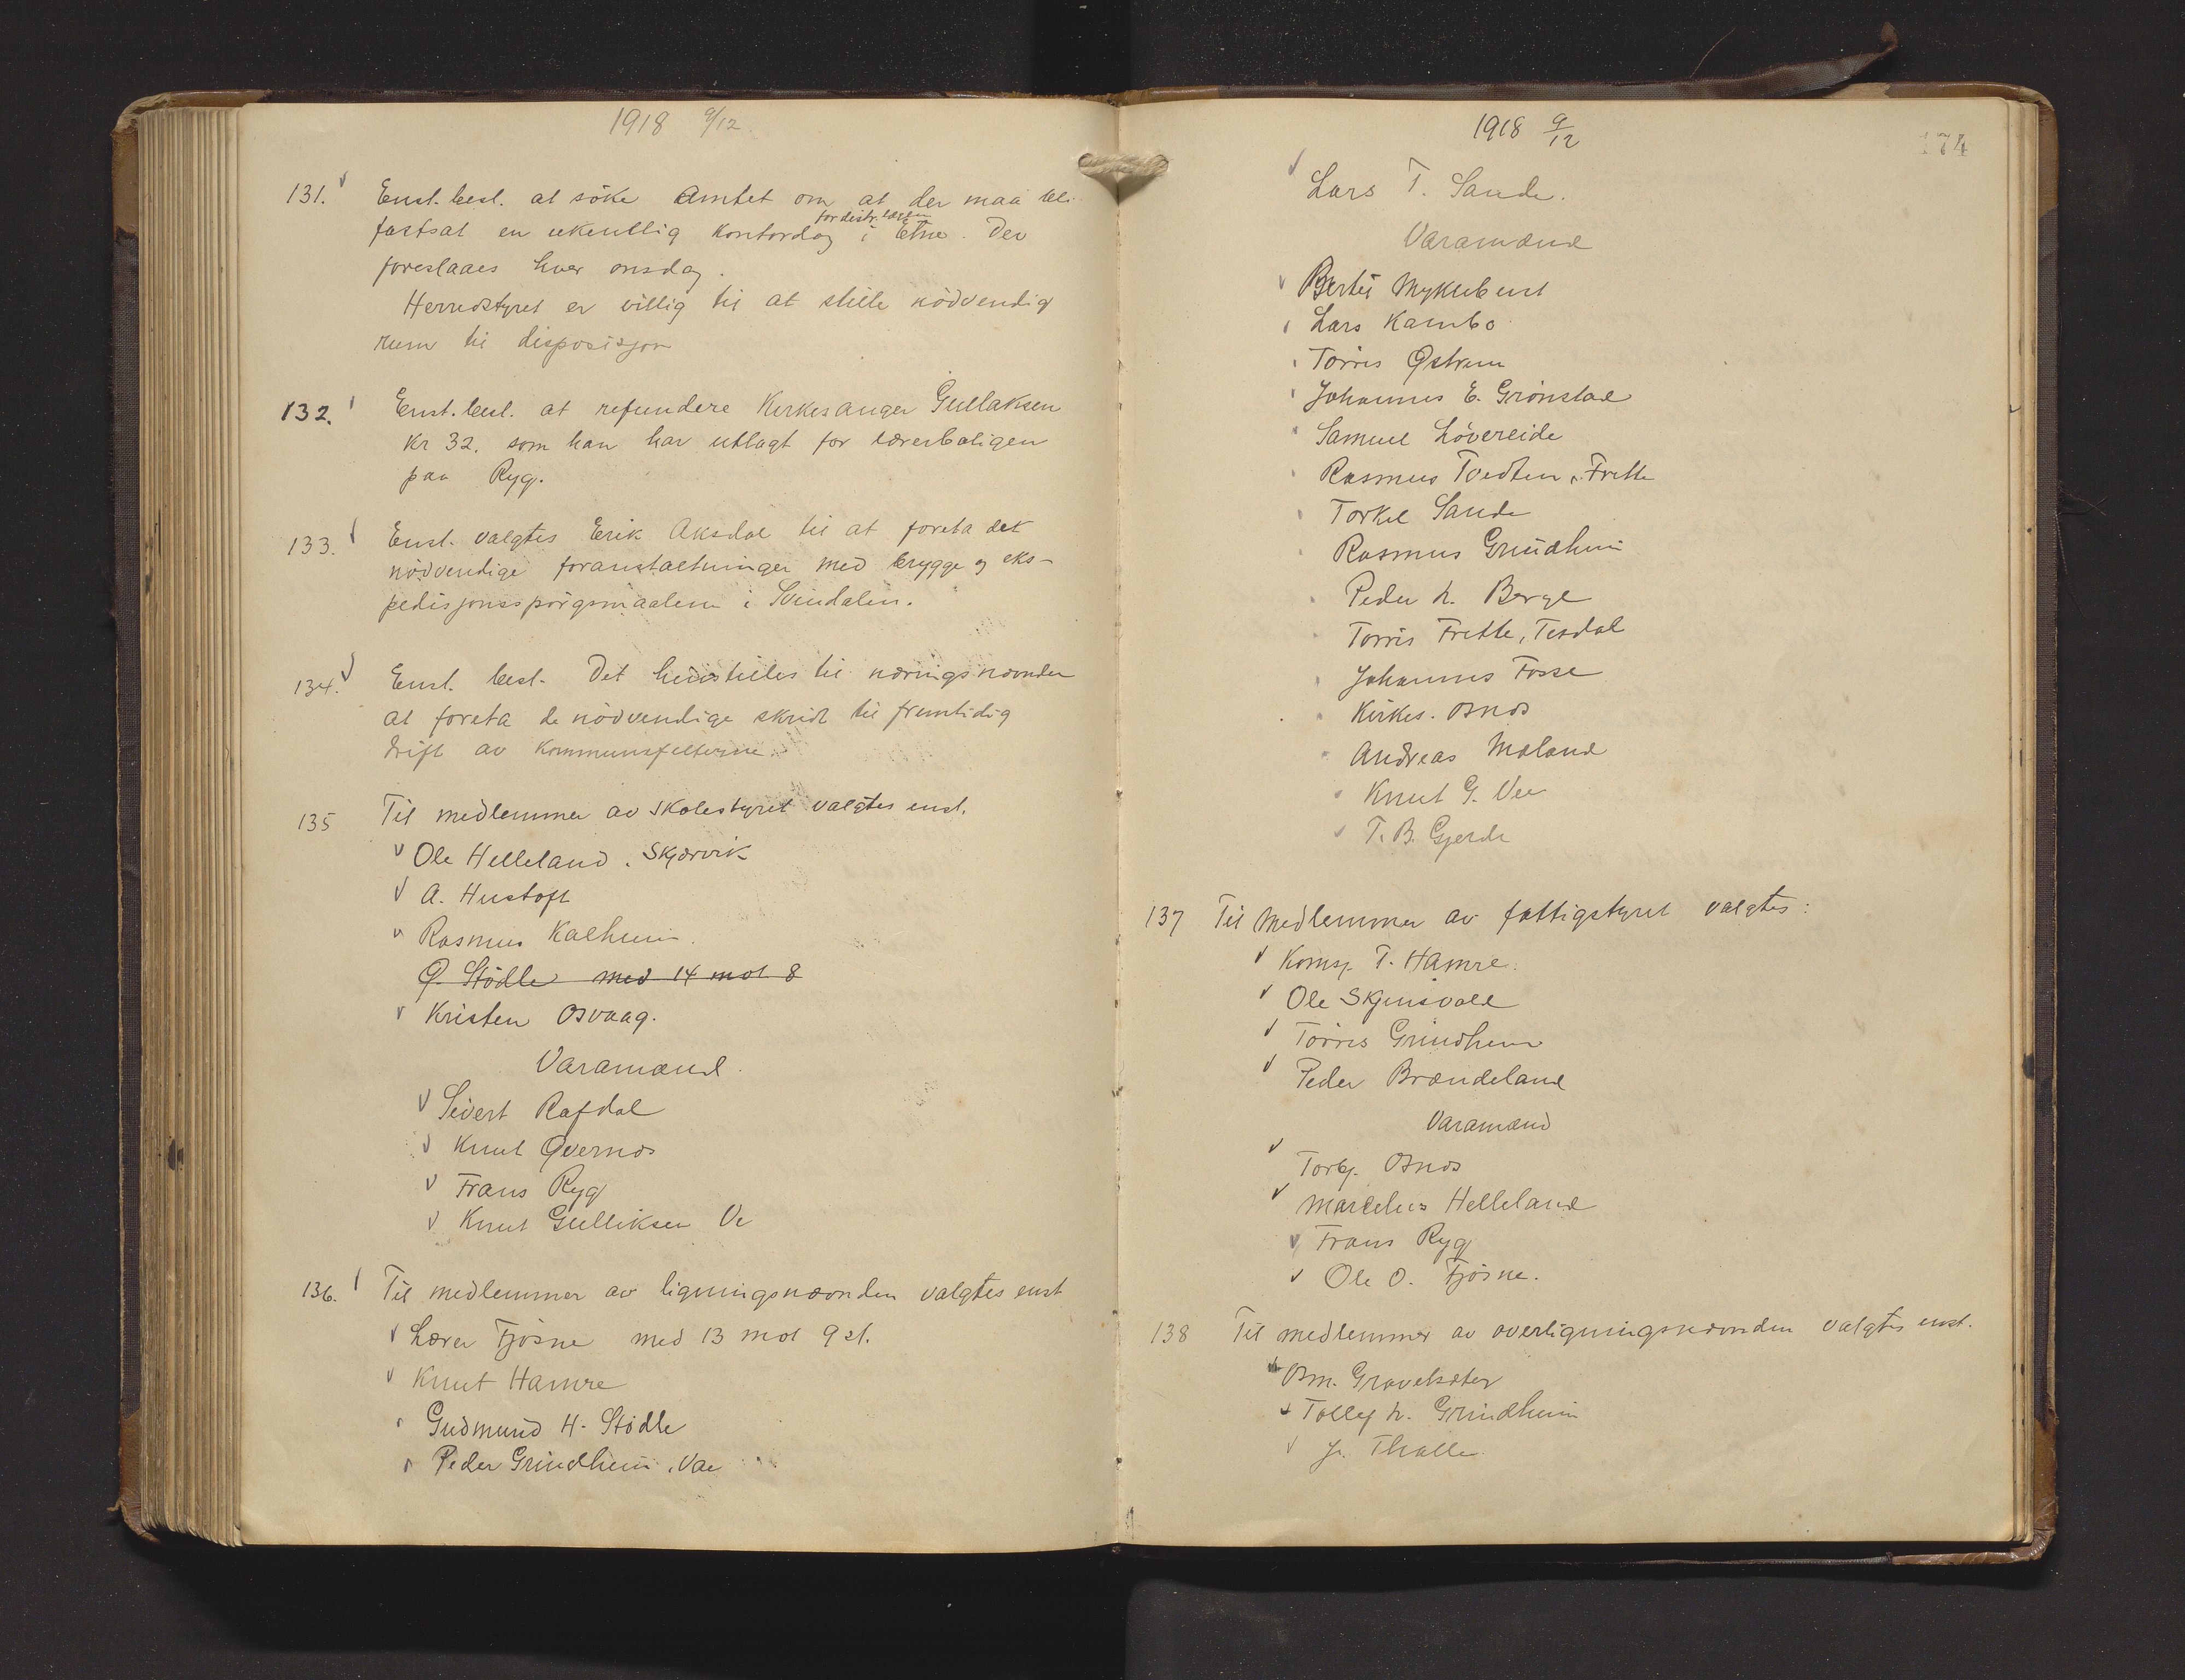 1918 9/12.
131. Enst. besl. at söke Amtet om at der maa bli
fastsat en ukentlig kontordag for distr. lægen i Etne. Der
foreslaaes hver onsdag.
Herredstyret er villig til at stille nödvendig
rum til disposisjon
132. Enst. besl. at refundere Kirkesanger Gullaksen
Kr 32. som han har utlagt for lærerboligen
paa Ryg.
133. Enst. valgtes Erik Aksdal til at foreta det
nödvendige foranstaltninger med brygge og eks-
pedisjonsspörgsmaalene i Svindalen.
134. Enst. besl. Det henstilles til næringsnævnden
at foreta de nödvendige skridt til fremtidig
drift av kommunefelterne.
135 Til medlemmer av skolestyret valgtes enst.
Ole Helleland. Skjærvik
A. Hustoft
Rasmus Kalheim.
Q. Stödle med 14 mot 8
Kristen Osvaag.
Varamænd.
Sivert Rafdal
Knut Qvernæs
Frans Ryg
Knut Gulliksen Ve
136. Til medlemmer av ligningsnævnden valgtes enst
Lærer Fjösne med 13 mot 9 st.
Knut Hamre
Gudmund H. Stödle
Peder Grindheim, Vae
1918 9/12
174
Lars T. Sande.
Varamænd
Bertil Myklebust
Lars Kambo
Törres Östrem
Johannes E. Grönstad
Samuel Lövereide
Rasmus Tvedten, Frette
Torkel Sande
Rasmus Grindheim
Peder L. Berge
Torris Frette, Tesdal
Johannes Fosse
Kirkes. Osnæs
Andreas Mæland
Knut G. Vee
T. B. Gjerde
137 Til medlemmer av fattigstyret valgtes:
Komsj. T. Hamre.
Ole Skjensvold
Törres Grindheim
Peder Brændeland
Varamænd
Torbj. Osnæs
Marselius Helleland
Frans Ryg
Ole O. Fjösne.
138 Til medlemmer av overligningsnævnden valgtes enst.
Bm. Gravelsæter
Tollef L. Grindheim
Jr. Thalle.